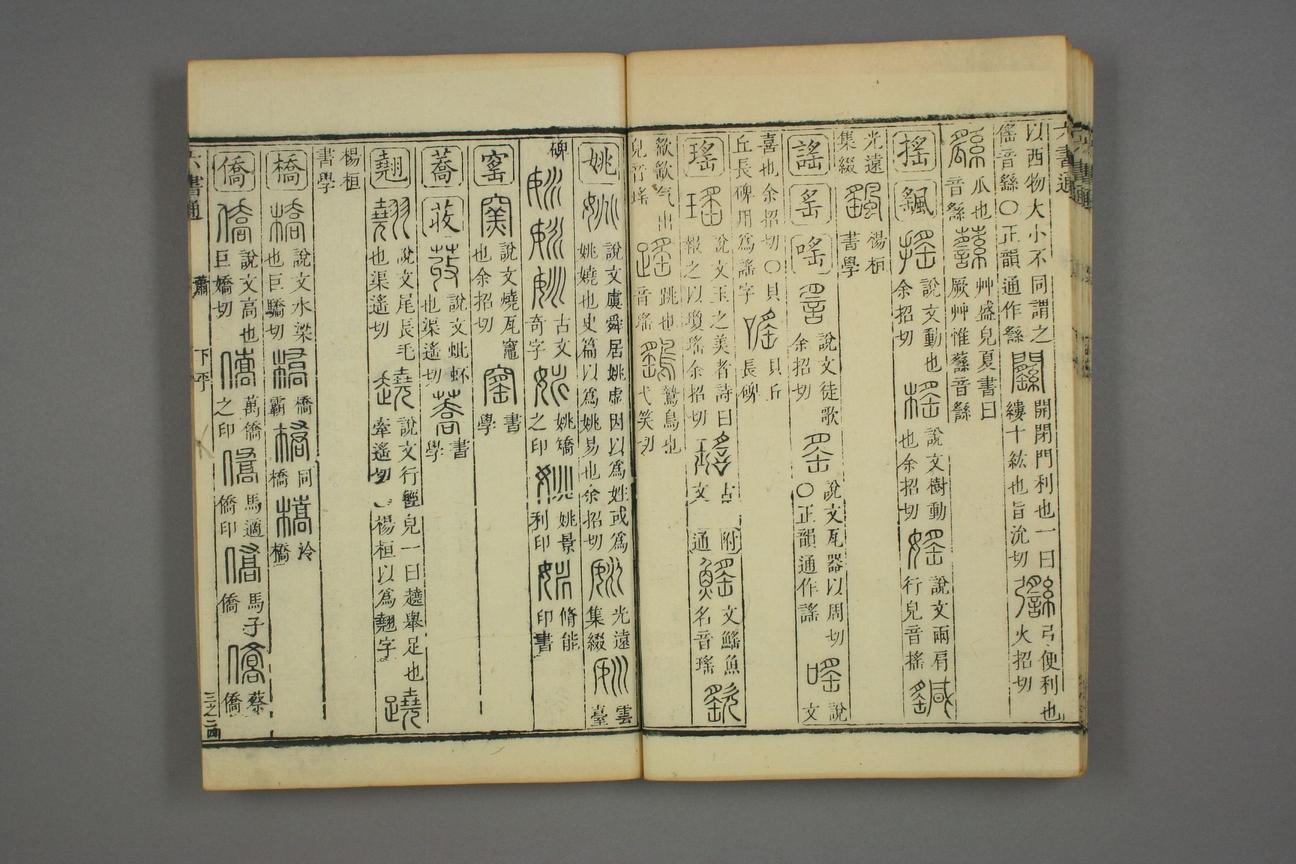 六書通
以西物大小不同謂之 開閉門利也一曰 弓便利也
傜音繇〇正韻通作繇 縷十紘也旨沇切 火招切
瓜也 艸盛皃夏書曰
音繇 厥艸惟蘨音繇
搖 颻 說文動也 說文樹動 說文兩肩
余招切 也余招切 行皃音搖
光遠 湯桓
集綴 書學
謠 䍃 嗂 說文徒歌 說文瓦器以周切 說
余招切 〇正韻通作謠 文
喜也余招切〇貝 貝丘
丘長碑用爲謠字 長碑
瑤 說文玉之美者詩曰 古 附 文鰩魚
報之以瓊瑤余招切 文 通 名音瑤
歊歊气出 跳也 鷙鳥也
皃音瑤 音瑤 弋笑切
姚 說文虞舜居姚虛因以爲姓或爲 光遠 雲
姚嬈也史篇以爲姚易也余招切 集綴 臺
碑 古文 姚矯 姚景 脩能
奇字 之印 利印 印書
窰 說文燒瓦竈 書
也余招切 學
蕎 荍 說文蚍衃 書
也渠遙切 學
翹 說文尾長毛 說文行輕皃一曰趬舉足也
也渠遙切 牽遙切 楊桓以爲翹字
楊桓
書學
橋 說文水梁 橋 同 泠
也巨驕切 霸 橋 橋
僑 說文高也 萬僑 馬適 馬子 蔡
巨嬌切 之印 僑印 僑 僑
六書通 蕭 下平 三之二四